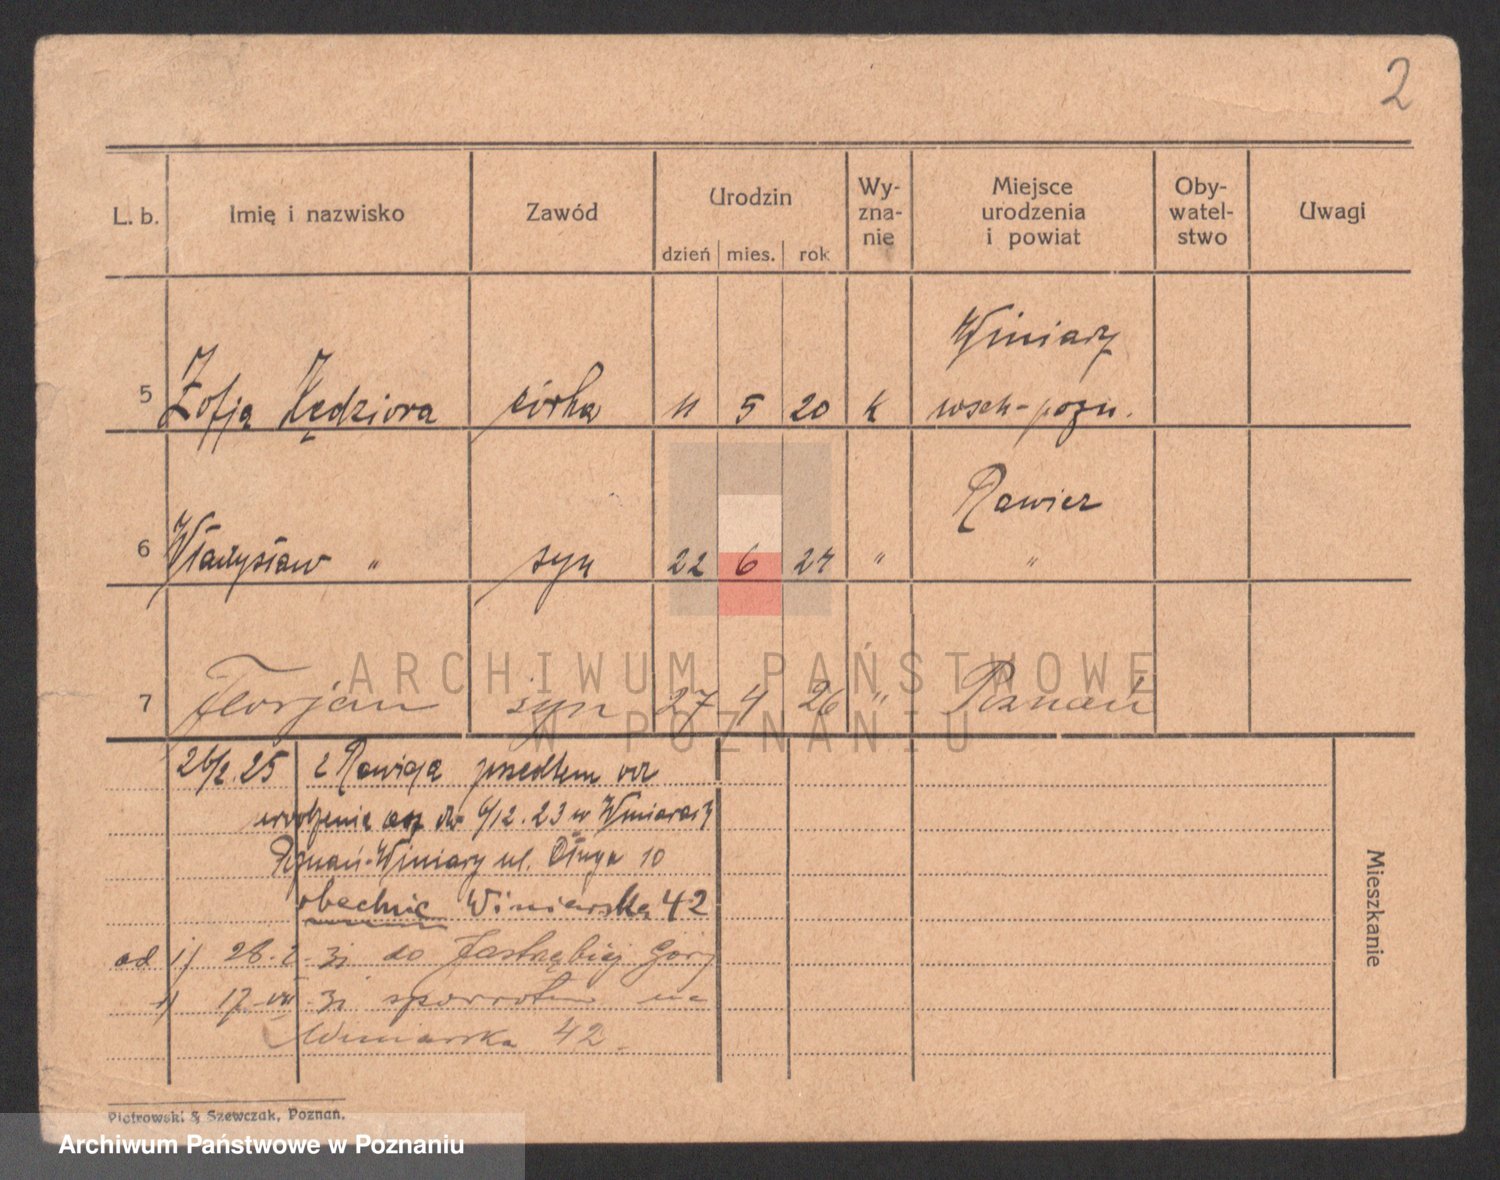 2
L. b.
Imię i nazwisko
Zawód
Urodzin
dzień mies. rok
Wy-
zna-
nie
Miejsce
urodzenia
i powiat
Oby-
watel-
stwo
Uwagi
Winiary
5 Zofja Kędziora córka 11 5 20 k wsch-pozn.
Rawicz
6 Władysław " syn 22 6 24 " "
7 Florjan syn 27 4 26 " Poznań
26/2.25 z Rawicza przedtem od
urodzenia do 6/12.23 w Winiarach
Poznań-Winiary ul. Długa 10
obecnie Winiarska 42
od 1) 28.2.31 do Jastrzębiej Góry
17 VIII 31 spowrotem na
Winiarska 42
Mieszkanie
Piotrowski & Szewczak, Poznań.
ARCHIWUM PAŃSTWOWE
W POZNANIU
Archiwum Państwowe w Poznaniu